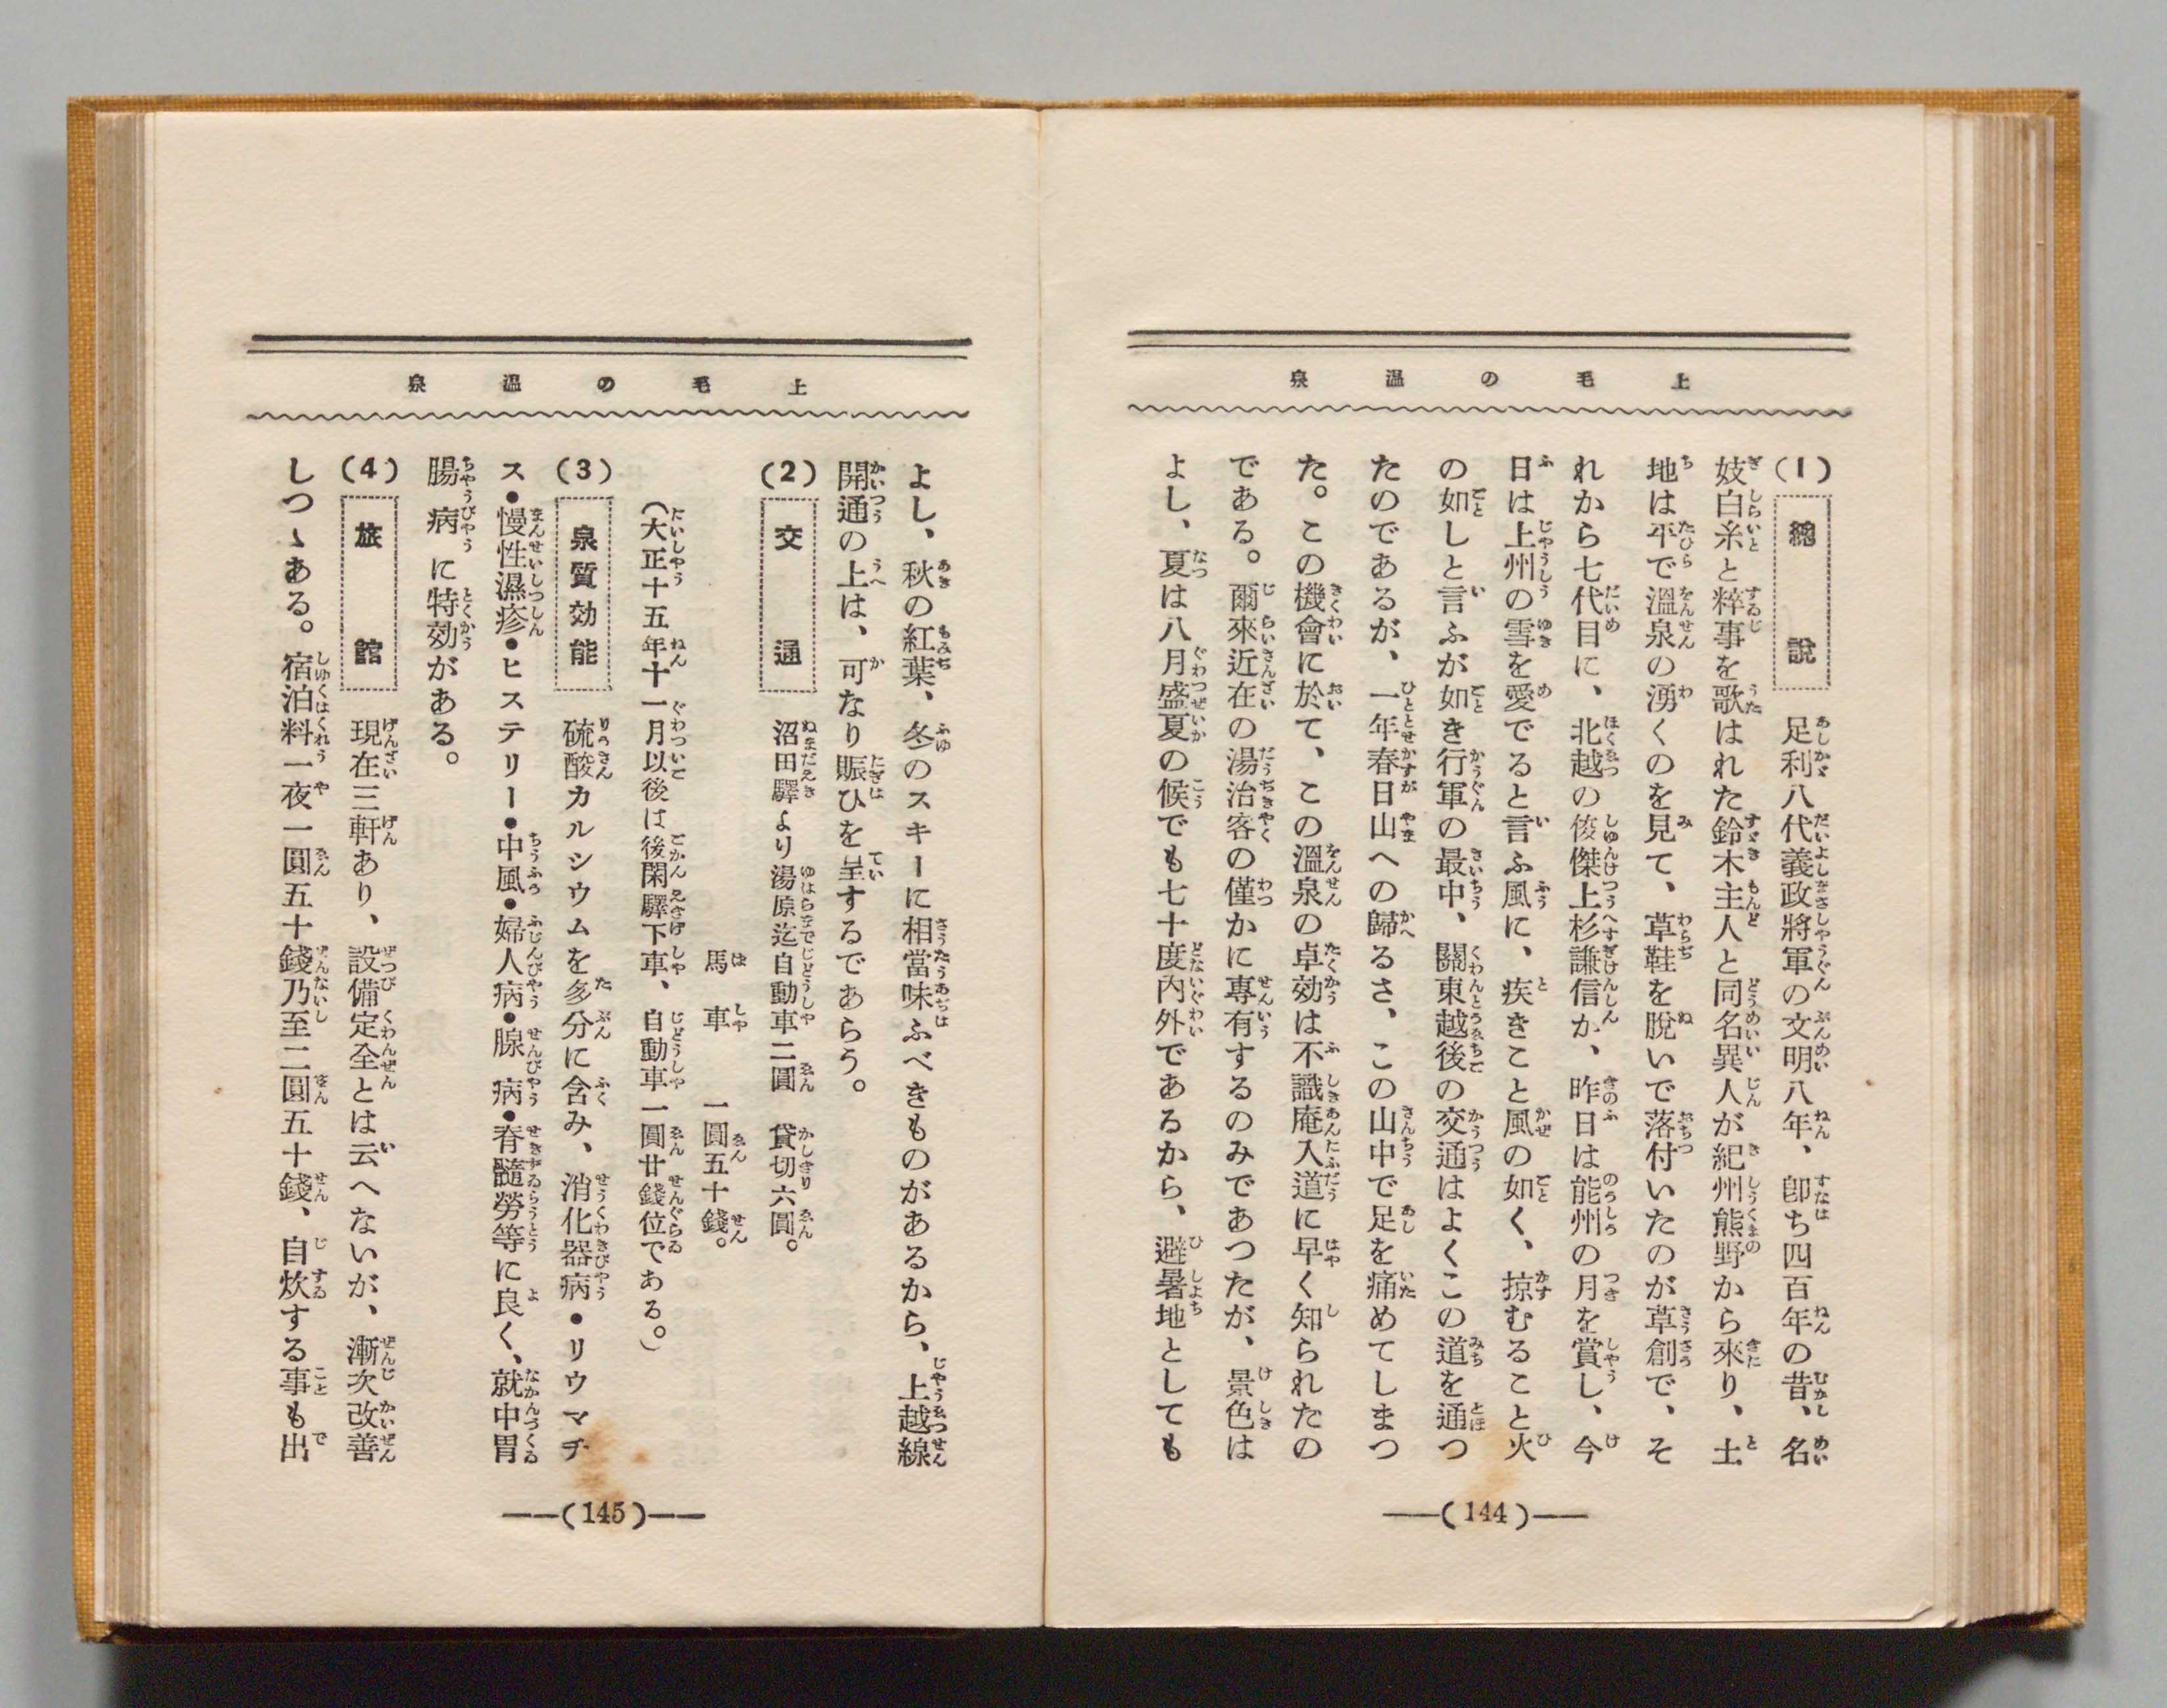 上毛の温泉
(1) 總說 足利八代義政將軍の文明八年、卽ち四百年の昔、名
妓白糸と粹事を歌はれた鈴木主人と同名異人が紀州熊野から來り、土
地は平で溫泉の湧くのを見て、草鞋を脫いで落付いたのが草創で、そ
れから七代目に、北越の俊傑上杉謙信か、昨日は能州の月を賞し、今
日は上州の雪を愛でると言ふ風に、疾きこと風の如く、掠むること火
の如しと言ふが如き行軍の最中、關東越後の交通はよくこの道を通つ
たのであるが、一年春日山への歸るさ、この山中で足を痛めてしまつ
た。この機會に於て、この溫泉の卓効は不識庵入道に早く知られたの
である。爾來近在の湯治客の僅かに專有するのみであつたが、景色は
よし、夏は八月盛夏の候でも七十度內外であるから、避暑地としても
――(144)――
上毛の温泉
よし、秋の紅葉、冬のスキーに相當味ふべきものがあるから、上越線
開通の上は、可なり賑ひを呈するであらう。
(2) 交通 沼田驛より湯原迄自動車二圓 貸切六圓。
馬車 一圓五十錢。
(大正十五年十一月以後は後閑驛下車、自動車一圓廿錢位である。)
(3) 泉質効能 硫酸カルシウムを多分に含み、消化器病・リウマチ
ス・慢性濕疹・ヒステリー・中風・婦人病・腺病・脊髓勞等に良く、就中胃
腸病に特効がある。
(4) 旅館 現在三軒あり、設備定全とは云へないが、漸次改善
しつゝある。宿泊料一夜一圓五十錢乃至二圓五十錢、自炊する事も出
――(145)――